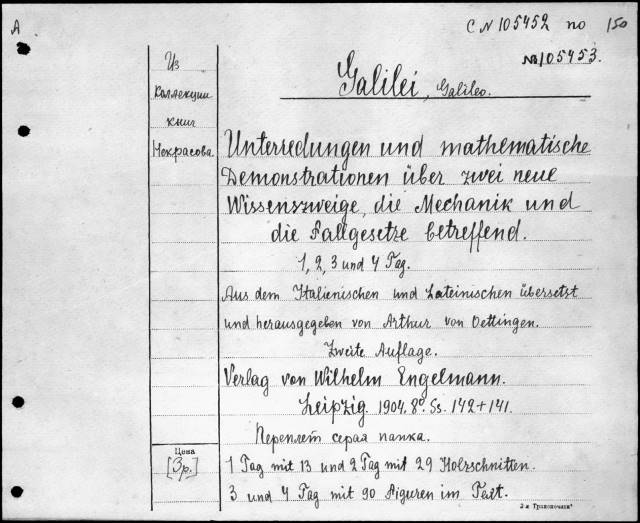 A
C N 105452 по 150
№105453.
Из
коллекции
книг
Некрасова.
Galilei, Galileo.
Unterredungen und mathematische
Demonstrationen über zwei neue
Wissenszweige, die Mechanik und
die Fallgesetze betreffend.
1, 2, 3 und 4 Tag.
Aus dem Italienischen und Lateinischen übersetzt
und herausgegeben von Arthur von Oettingen.
Zweite Auflage.
Verlag von Wilhelm Engelmann.
Leipzig. 1904. 8º. Ss. 142+141.
Переплет серая папка.
Цена
[3р.]
1 Tag mit 13 und 2 Tag mit 29 Holzschnitten.
3 und 4 Tag mit 90 Figuren im Text.